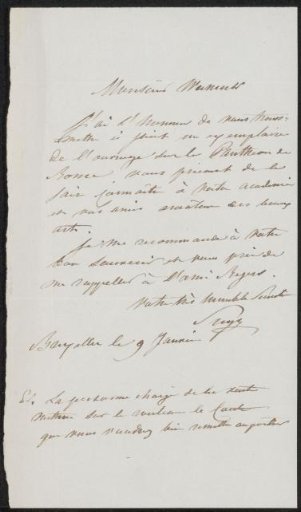 Monsieur
J'ai l'honneur de vous trans-
mettre ci joint un exemplaire
de l'ouvrage sur le Panthéon de
Rome, vous priant de le
faire connaître à votre académie
et vos amis amateurs des beaux
arts.
Je me recommande à votre
bon souvenir et vous prie de
me rappeller à l'ami
Votre très humble
Suys
Bruxelles le 9 Janvier
La personne chargé de
mettra sur le la Carte
que vous voudrez bien remettre